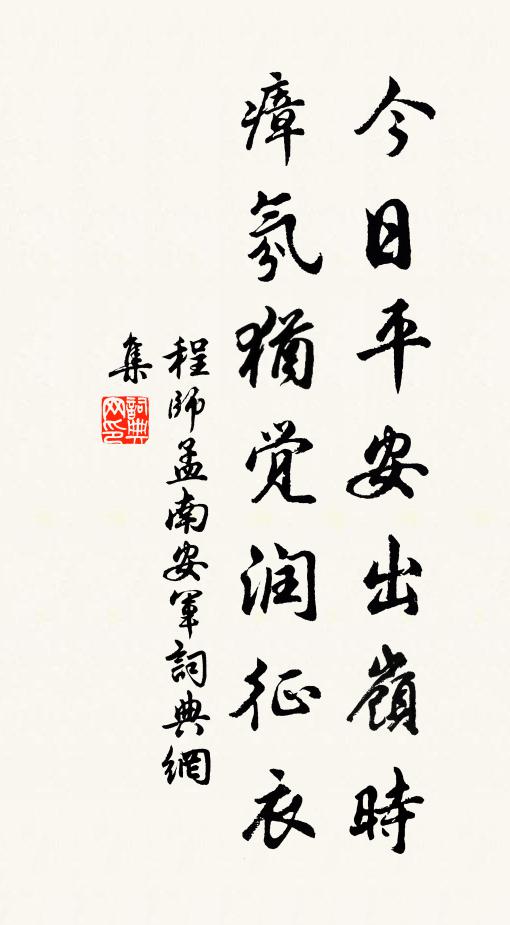 今日平安出嶺時
瘴氛猶觉润征衣
程師孟南安軍詞典網
集
詞典
网印